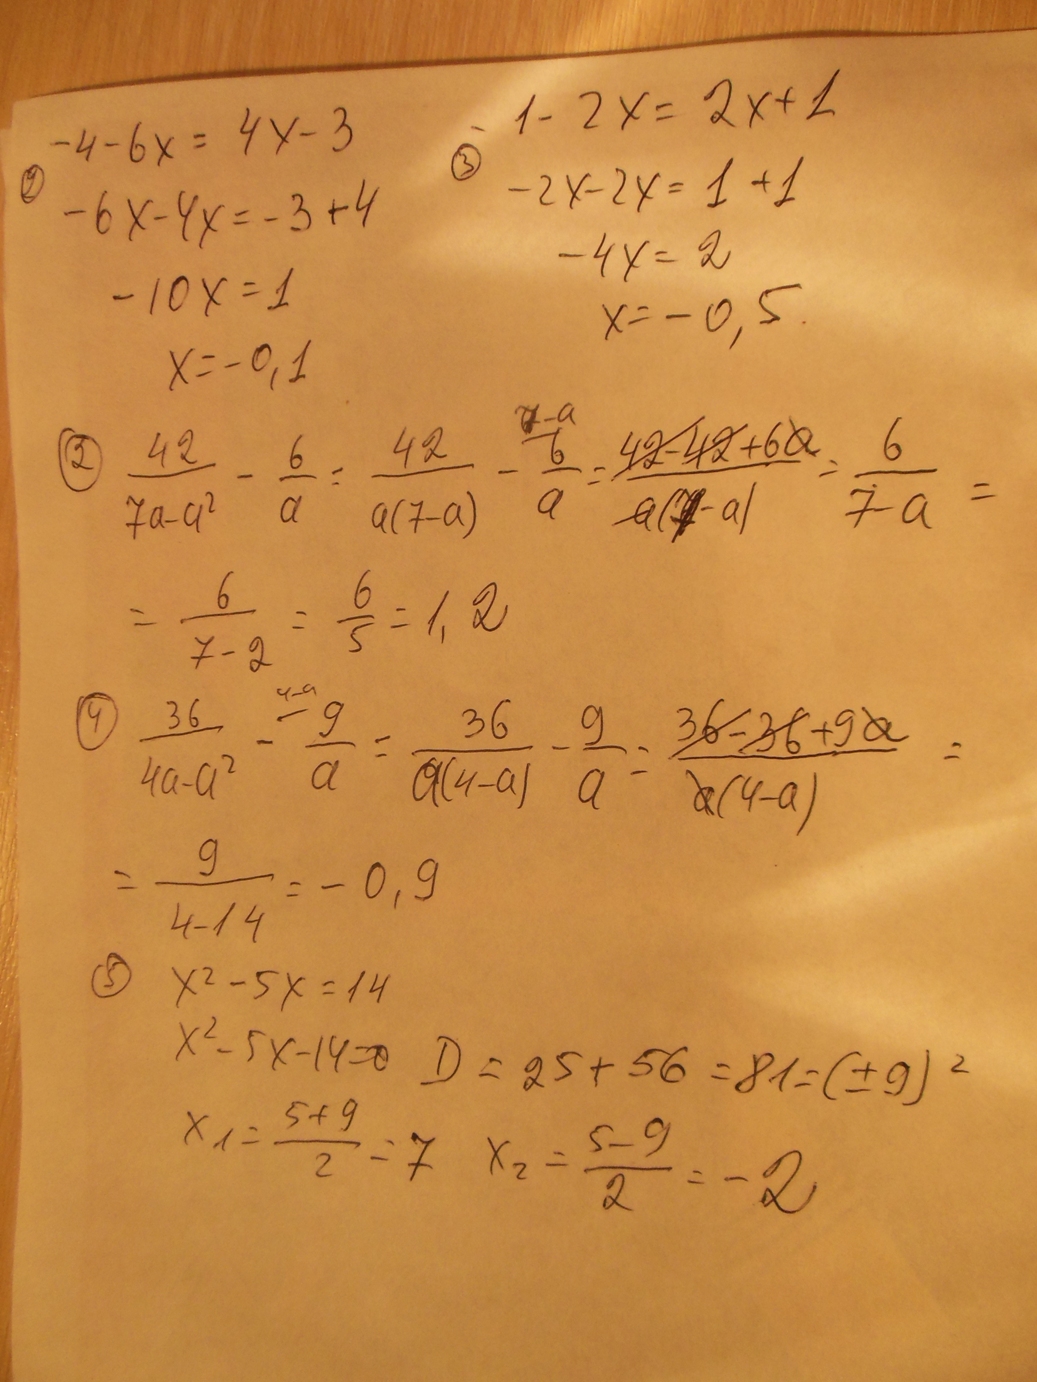 ① -4-6x = 4x-3
-6x-4x=-3+4
-10x=1
x=-0,1
③ -1-2x=2x+1
-2x-2x=1+1
-4x=2
x=-0,5
② 42/(7a-a²) - 6/a = 42/(a(7-a)) - 6/a (7-a) = (42-42+6a)/(a(7-a)) = 6/(7-a) =
= 6/(7-2) = 6/5 = 1,2
④ 36/(4a-a²) - 9/a (4-a) = 36/(a(4-a)) - 9/a = (36-36+9a)/(a(4-a)) =
= 9/(4-14) = -0,9
⑤ x²-5x=14
x²-5x-14=0 D=25+56=81=(±9)²
x₁=(5+9)/2=7 x₂=(5-9)/2=-2